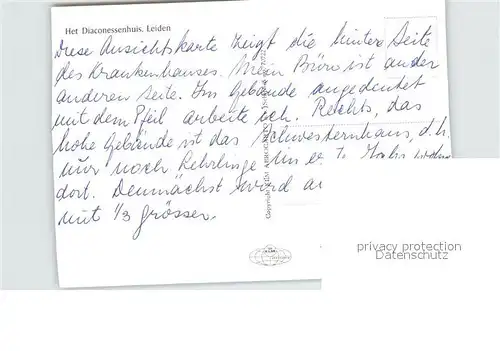 Het Diaconessenhuis. Leiden
Diese Ansichtskarte zeigt die hintere Seite
des Krankenhauses. Mein Büro ist an der
anderen Seite. Im Gebäude angedeutet
mit dem Pfeil arbeite ich. Rechts, das
hohe Gebäude ist das Schwesternhaus, d.h.
nur noch Lehrlinge im
dort. Demnächst wird
mit 1/3 grösser.
Copyright
privacy protection
Datenschutz